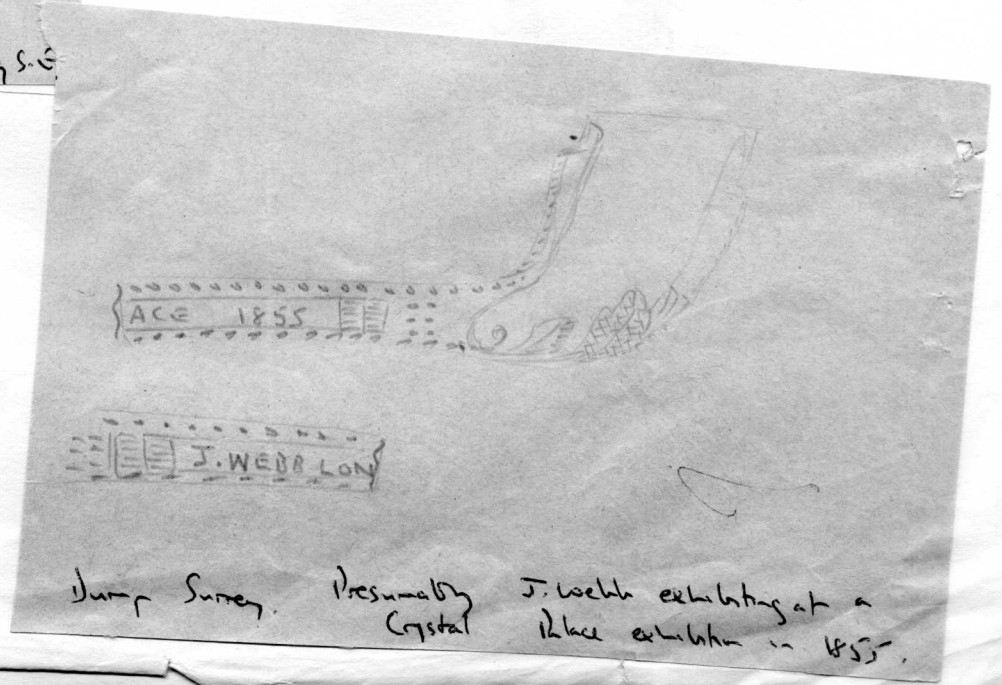 S.E
ACE 1855
J. WEBB LON
Dump Surrey. Presumably J. Webb exhibiting at a
Crystal Palace exhibition in 1855.